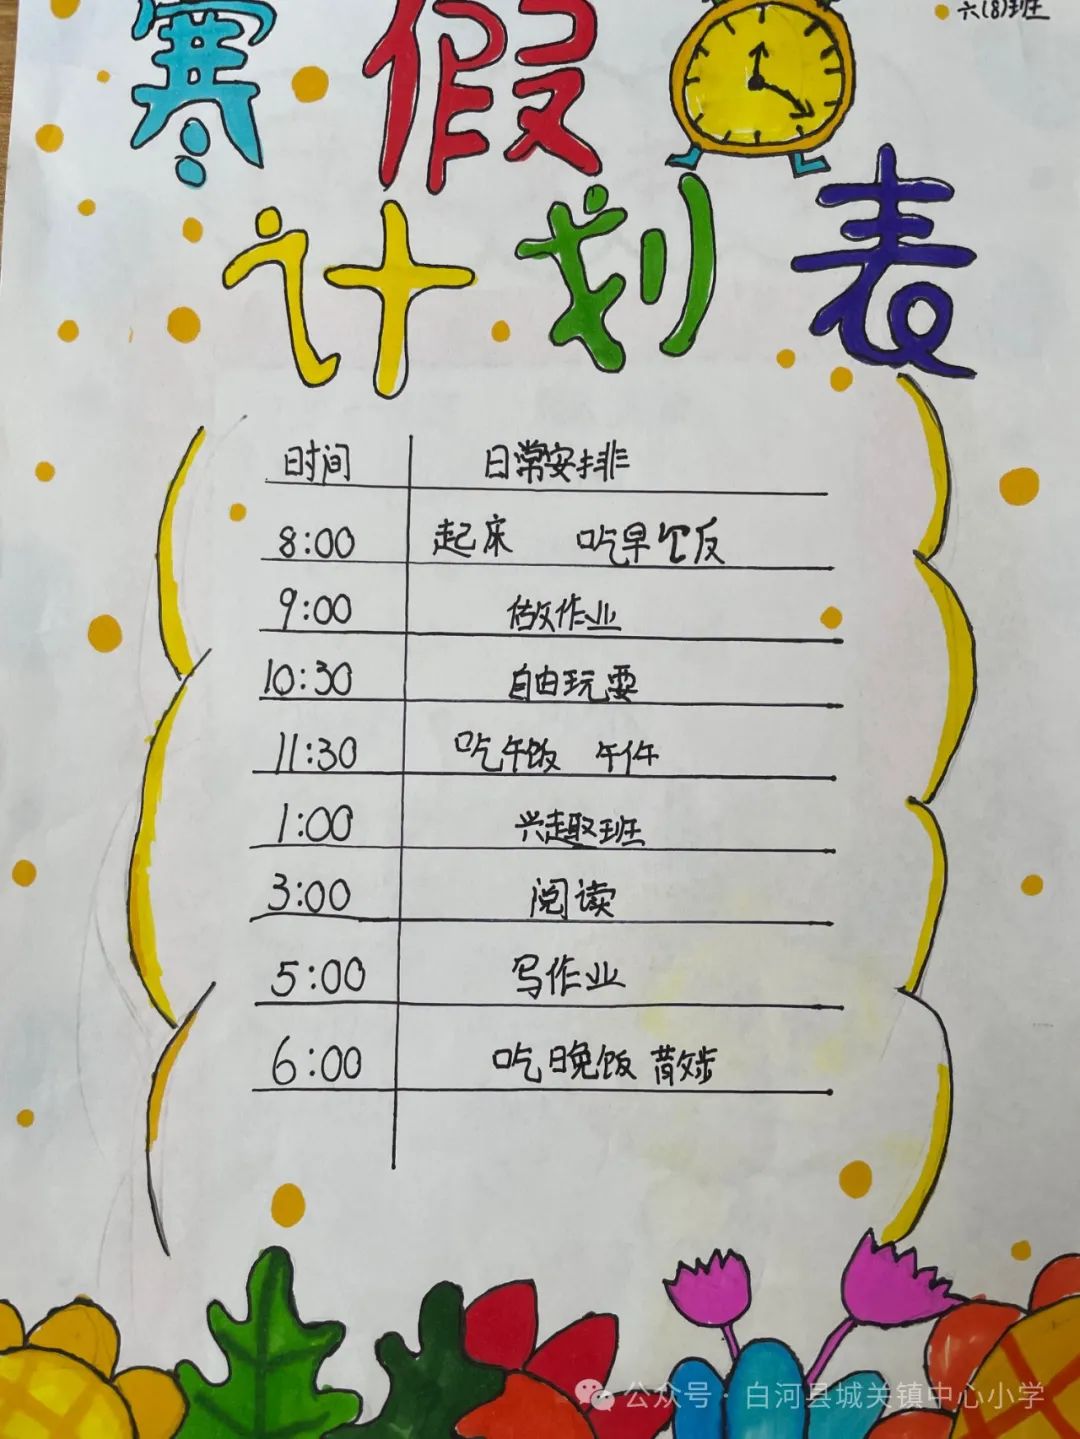 六(8)班
寒假
计划表
时间 日常安排
8:00 起床 吃早饭
9:00 做作业
10:30 自由玩耍
11:30 吃午饭 午休
1:00 兴趣班
3:00 阅读
5:00 写作业
6:00 吃晚饭 散步
公众号·白河县城关镇中心小学